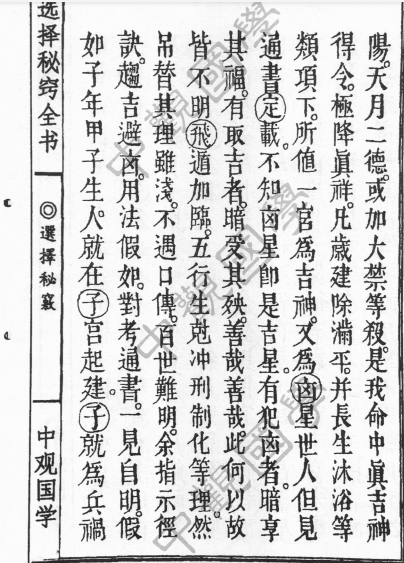 陽。天月二德。或加大禁等殺。是我命中眞吉神
得令。極降眞祥。凡歲建除滿平。并長生沐浴等
類項下。所値一宮爲吉神。又爲凶星。世人但見
通書定載。不知凶星即是吉星。有犯凶者。暗享
其福。有取吉者。暗受其殃。善哉善哉。此何以故
皆不明飛遁加臨。五行生尅冲刑制化等理。然
吊替其理雖淺。不遇口傳。百世難明。余指示徑
訣。趨吉避凶。用法假如。對考通書。一見自明。假
如子年甲子生人。就在子宮起建。子就爲兵禍
选择秘窍全书
◎選擇秘竅
中观国学
中觀國學
中觀國學